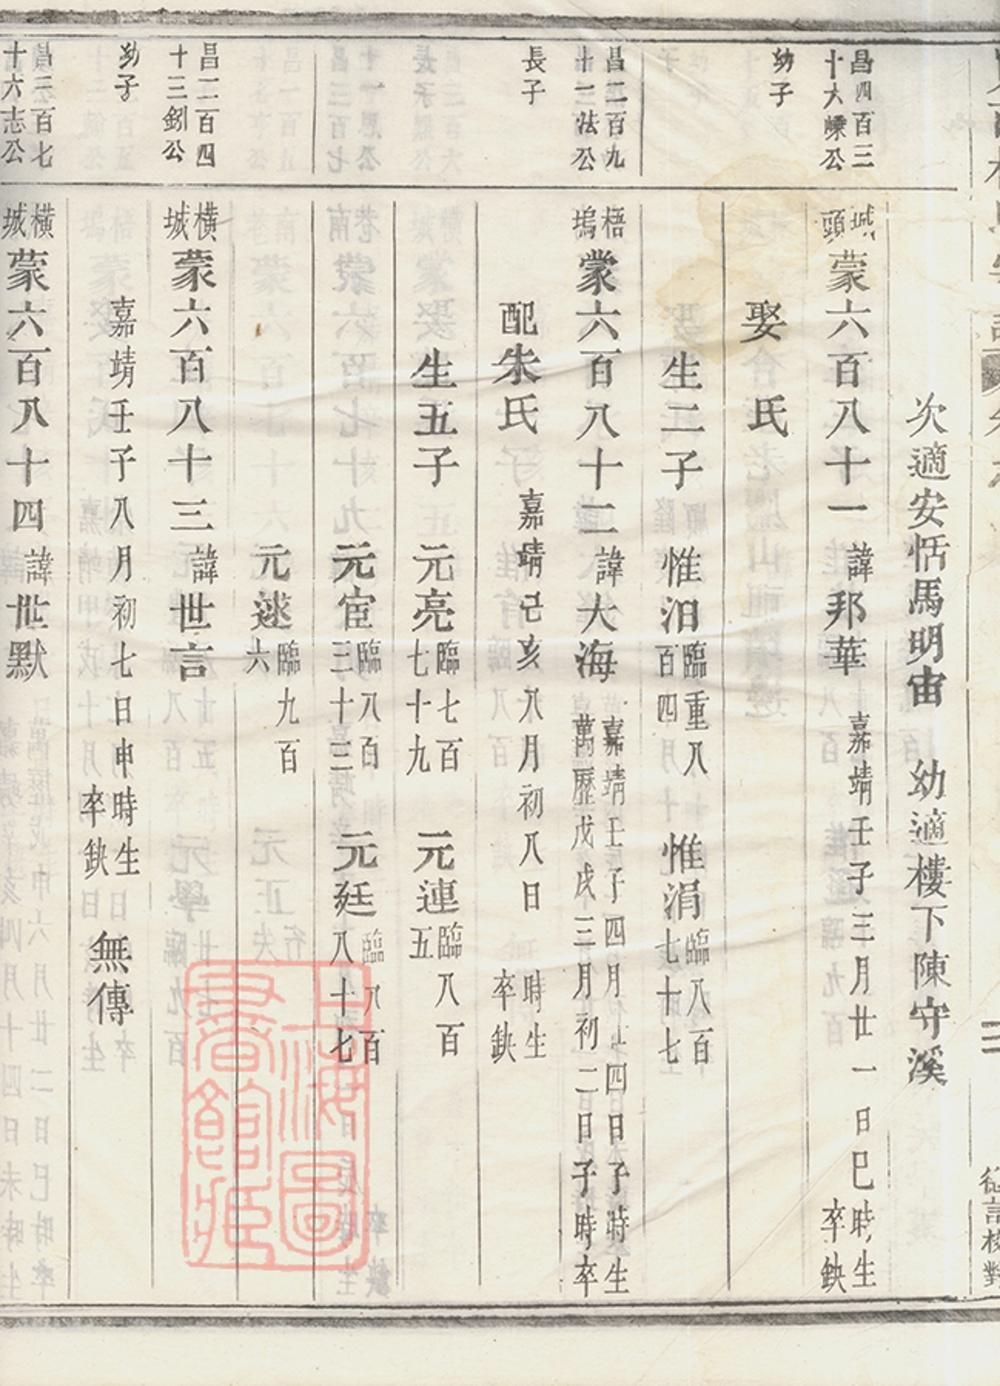 次適安恬馬明宙 幼適樓下陳守溪
昌四百三
幼子
城頭 蒙六百八十一 諱邦華 嘉靖壬子三月廿一日巳時生 卒缺
娶 氏
生二子 惟汨 臨重八百四 惟涓 臨八百七十七
昌二百九
十二法公
長子
梧塢 蒙六百八十二 諱大海 嘉靖壬子四月 四日子時生 萬歷戊戌三月初二日子時卒
配朱氏 嘉靖己亥八月初八日 時生 卒缺
生五子 元亮 臨七百七十九 元連 臨八百五
元宦 臨八百三十三 元廷 臨八百八十七
元逑 臨九百六
昌二百四
十三釗公
幼子
橫城 蒙六百八十三 諱世言
嘉靖壬子八月初七日申時生 卒缺 無傳
昌三百七
十六志公
橫城 蒙六百八十四 諱世默
上海圖書館藏